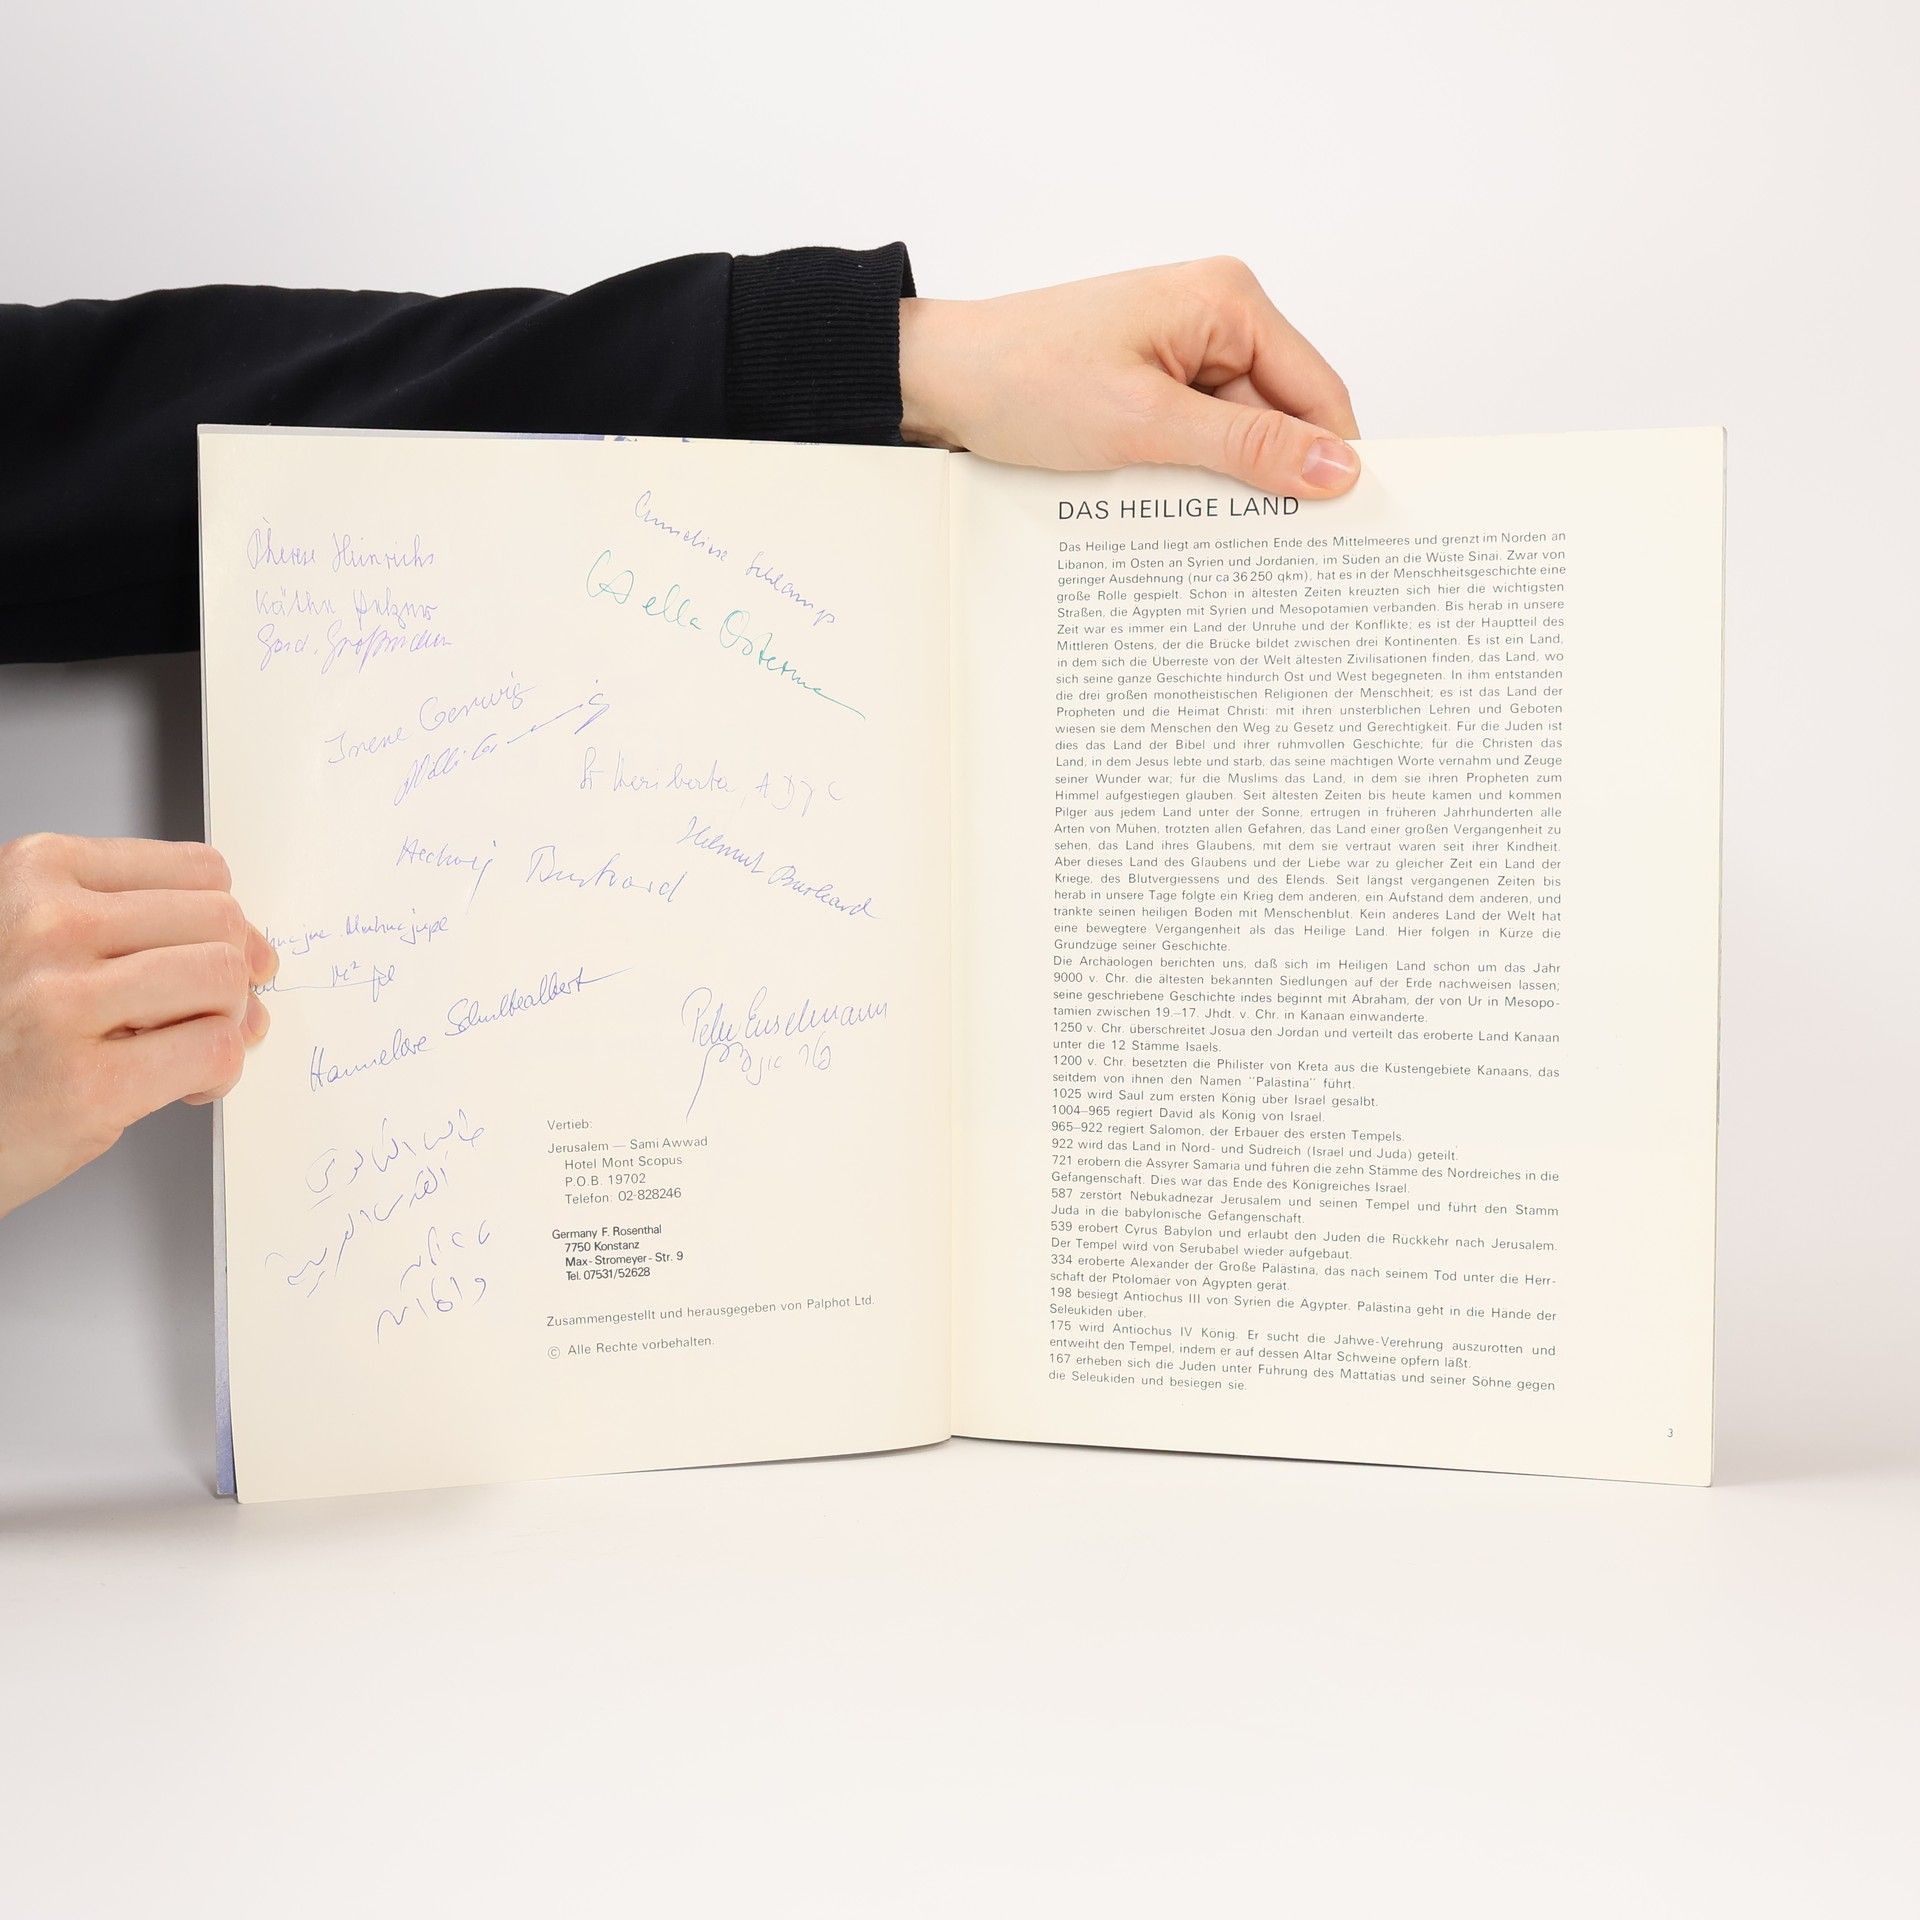 Therese Heinrichs
Käthe
Anneliese Schlamp
Irene Gerwig
Hedwig Burkard
Helmut Burkard
Hannelore
Peter Enselmann
Vertieb:
Jerusalem — Sami Awwad
Hotel Mont Scopus
P.O.B. 19702
Telefon: 02-828246
Germany F. Rosenthal
7750 Konstanz
Max-Stromeyer-Str. 9
Tel. 07531/52628
Zusammengestellt und herausgegeben von Palphot Ltd.
© Alle Rechte vorbehalten.
DAS HEILIGE LAND
Das Heilige Land liegt am östlichen Ende des Mittelmeeres und grenzt im Norden an
Libanon, im Osten an Syrien und Jordanien, im Süden an die Wüste Sinai. Zwar von
geringer Ausdehnung (nur ca 36 250 qkm), hat es in der Menschheitsgeschichte eine
große Rolle gespielt. Schon in ältesten Zeiten kreuzten sich hier die wichtigsten
Straßen, die Ägypten mit Syrien und Mesopotamien verbanden. Bis herab in unsere
Zeit war es immer ein Land der Unruhe und der Konflikte; es ist der Hauptteil des
Mittleren Ostens, der die Brücke bildet zwischen drei Kontinenten. Es ist ein Land,
in dem sich die Überreste von der Welt ältesten Zivilisationen finden, das Land, wo
sich seine ganze Geschichte hindurch Ost und West begegneten. In ihm entstanden
die drei großen monotheistischen Religionen der Menschheit; es ist das Land der
Propheten und die Heimat Christi: mit ihren unsterblichen Lehren und Geboten
wiesen sie dem Menschen den Weg zu Gesetz und Gerechtigkeit. Für die Juden ist
dies das Land der Bibel und ihrer ruhmvollen Geschichte; für die Christen das
Land, in dem Jesus lebte und starb, das seine mächtigen Worte vernahm und Zeuge
seiner Wunder war; für die Muslims das Land, in dem sie ihren Propheten zum
Himmel aufgestiegen glauben. Seit ältesten Zeiten bis heute kamen und kommen
Pilger aus jedem Land unter der Sonne, ertrugen in früheren Jahrhunderten alle
Arten von Mühen, trotzten allen Gefahren, das Land einer großen Vergangenheit zu
sehen, das Land ihres Glaubens, mit dem sie vertraut waren seit ihrer Kindheit.
Aber dieses Land des Glaubens und der Liebe war zu gleicher Zeit ein Land der
Kriege, des Blutvergiessens und des Elends. Seit längst vergangenen Zeiten bis
herab in unsere Tage folgte ein Krieg dem anderen, ein Aufstand dem anderen, und
tränkte seinen heiligen Boden mit Menschenblut. Kein anderes Land der Welt hat
eine bewegtere Vergangenheit als das Heilige Land. Hier folgen in Kürze die
Grundzüge seiner Geschichte.
Die Archäologen berichten uns, daß sich im Heiligen Land schon um das Jahr
9000 v. Chr. die ältesten bekannten Siedlungen auf der Erde nachweisen lassen;
seine geschriebene Geschichte indes beginnt mit Abraham, der von Ur in Mesopo-
tamien zwischen 19.–17. Jhdt. v. Chr. in Kanaan einwanderte.
1250 v. Chr. überschreitet Josua den Jordan und verteilt das eroberte Land Kanaan
unter die 12 Stämme Isaels.
1200 v. Chr. besetzten die Philister von Kreta aus die Küstengebiete Kanaans, das
seitdem von ihnen den Namen "Palästina" führt.
1025 wird Saul zum ersten König über Israel gesalbt.
1004–965 regiert David als König von Israel.
965–922 regiert Salomon, der Erbauer des ersten Tempels.
922 wird das Land in Nord- und Südreich (Israel und Juda) geteilt.
721 erobern die Assyrer Samaria und führen die zehn Stämme des Nordreiches in die
Gefangenschaft. Dies war das Ende des Königreiches Israel.
587 zerstört Nebukadnezar Jerusalem und seinen Tempel und führt den Stamm
Juda in die babylonische Gefangenschaft.
539 erobert Cyrus Babylon und erlaubt den Juden die Rückkehr nach Jerusalem.
Der Tempel wird von Serubabel wieder aufgebaut.
334 eroberte Alexander der Große Palästina, das nach seinem Tod unter die Herr-
schaft der Ptolomäer von Ägypten gerät.
198 besiegt Antiochus III von Syrien die Ägypter. Palästina geht in die Hände der
Seleukiden über.
175 wird Antiochus IV König. Er sucht die Jahwe-Verehrung auszurotten und
entweiht den Tempel, indem er auf dessen Altar Schweine opfern läßt.
167 erheben sich die Juden unter Führung des Mattatias und seiner Söhne gegen
die Seleukiden und besiegen sie.
3